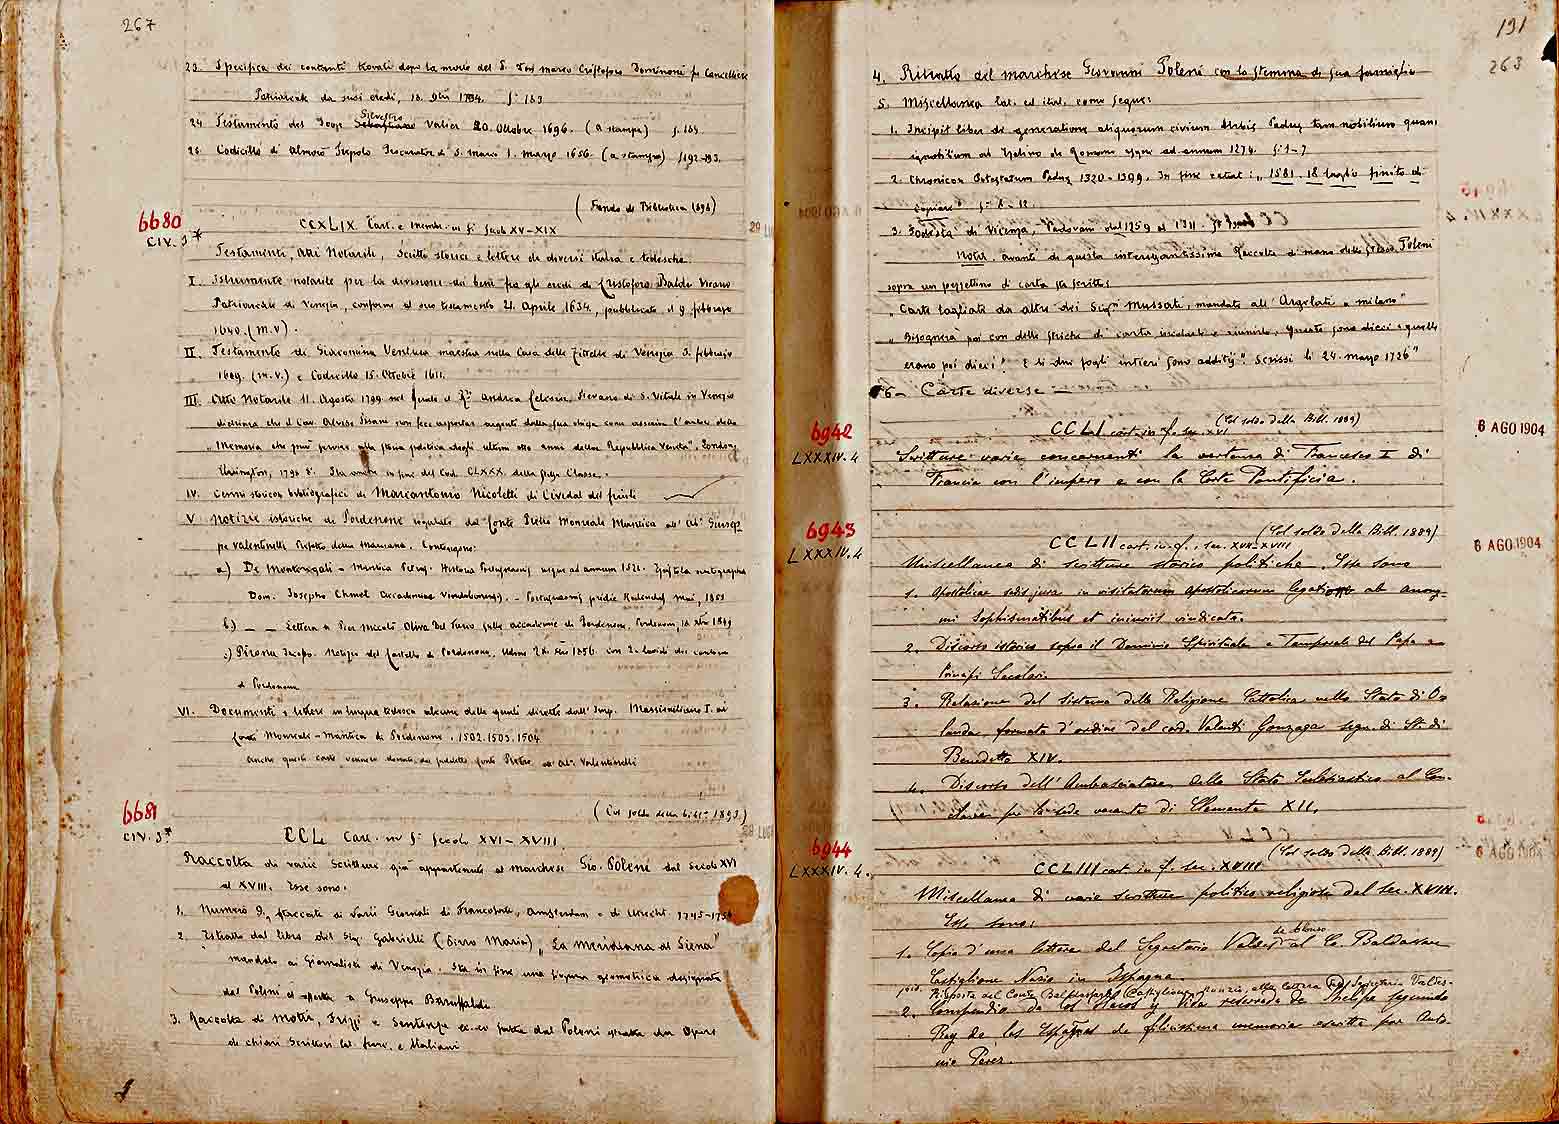 267
23. Specifica dei contanti trovati dopo la morte del S. Marco Cristoforo Dominoni fu Cancelliere
Patriarcale da suoi eredi, 18. 1734. f. 183
24. Testamento del Doge Silvestro Valier 20. Ottobre 1696. (a stampa) f. 189.
25. Codicillo di Almorò Tiepolo Procurator di S. Marco 1. Marzo 1656. (a stampa) f. 192-193.
(Fondo di Biblioteca 1892)
6680
CIV. 3*
CCXLIX Cart. e membr. in f. secoli XV-XIX
Testamenti, Atti Notarili, Scritti storici e lettere di diversi italia e tedesche.
I. Istrumento notarile per la divisione dei beni fra gli eredi di Cristoforo Baldi Vicario
Patriarcale di Venezia, conforme al suo testamento 21. Aprile 1634., pubblicato il 9. febbraio
1640. (m.v).
II. Testamento di Giacomina Ventura maestra nella Casa delle Zitelle di Venezia 3. febbraio
1609. (m.v.) e Codicillo 15. Ottobre 1611.
III. Atto Notarile 11. Agosto 1799 nel quale il Andrea Celesia, Pievano di S. Vitale in Venezia
dichiara che il Cav. Alvise Pisani non fece asportar argenti dalla sua chiesa come asserisce l'autor della
„ Memoria che può servire alla storia politica degli ultimi otto anni della Repubblica Veneta". Londra,
Rivington, 1798 8°. Sta unito in fine del Cod. CLXXX. della stessa Classe.
IV. Cenni storico bibliografici di Marcantonio Nicoletti di Cividal del friuli
V. Notizie istoriche di Pordenone regalate dal Conte Pietro Monreale Mantica all' Ab. Giusep-
pe Valentinelli Prefetto della Marciana. Contengono:
a) De Montereali - Mantica Petri. Historia usque ad annum 1521. Epistola autographa
Dom. Josepho Chmel Accademiae pridie Kalendas Mai, 1851
b) — — Lettera a Pier Niccolò Oliva Del Turco sulle accademie di Pordenone. Pordenone, 12 Xbre 1849
c) Pirona Jacopo. Notizie del Castello di Pordenone, Udine 1856. con 2 lucidi dei
di Pordenone
VI. Documenti e lettere in lingua tedesca alcune delle quali dirette dall' Imp. Massimiliano I. ai
Conti Monreale-Mantica di Pordenone. 1502. 1503. 1504
Anche queste carte vennero donate dal predetto Conte Pietro all' Ab. Valentinelli
(Col soldo della bibl. 1893.)
6681
CIV. 3*
CCL Cart. in f. secolo XVI-XVIII
Raccolta di varie Scritture già appartenute al marchese Gio. Poleni dal Secolo XVI
al XVIII. Esse sono:
1. Numero 9. staccate di varii Giornali di Francoforte, Amsterdam e di Utrecht. 1745-1756
2. Estratto dal libro del Sig. Gabrielli (Pirro Maria) „ La meridiana di Siena"
mandato ai Giornalisti di Venezia. Sta in fine una figura geometrica disegnata
dal Poleni ed spedita a Giuseppe Baruffaldi
3. Raccolta di Motti, Frizzi e Sentenze ecc. fatta dal Poleni tratta da Opere
di chiari Scrittori lat. franc. e Italiani
191
263
4. Ritratto del marchese Giovanni Poleni con lo stemma di sua famiglia
5. Miscellanea lat. ed ital. come segue:
1. Incipit liber de generatione aliquorum civium Urbis Paduę tam nobilium quam
ignobilium ad Ezelino de Romano usque ad annum 1274. f. 1-7
2. Chronicon Potestatum Paduę 1320-1399. In fine extat: „ 1581. 18 luglio finito di
copiare" f. 8-12.
3. Podestà di Vicenza, Padovani dal 1259 al 1311.
Nota. avanti di questa interessantissima Raccolta di mano dello stesso Poleni
sopra un pezzettino di carta sta scritto:
„ Carte tagliate da altre dei Sig.ri Mussati, mandate all' Argelati a milano"
„ Bisognerà poi con delle striche di carta incolarle e riunirle, Queste sono dieci e quelle
erano poi dieci! E li due fogli intieri sono additij". Scrissi li 24. marzo 1726"
6- Carte diverse —
6942
LXXXIV. 4
(Col soldo della Bibl. 1889)
CCLI cart. in f. sec. XVI
6 AGO 1904
Scritture varie concernenti la vertenza di Francesco I di
Francia con l'impero e con la Corte Pontificia.
6943
LXXXIV. 4
(Col soldo della Bibl. 1889)
CCLII cart. in f., sec. XVII-XVIII
6 AGO 1904
Miscellanea di scritture storico politiche. Esse sono
1. Apostolicae sedis jura in visitatorum apostolicorum legatione ab anony-
mi Sophismatibus et iniuriis vindicata.
2. Discorso istorico sopra il Dominio Spirituale e Temporale del Papa e
Principi Secolari.
3. Relazione del sistema della Religione Cattolica nello Stato di O-
landa, formata d'ordine del card. Valenti Gonzaga segr. di St. di
Benedetto XIV.
4. Discorso dell' Ambasciatore dello Stato Ecclesiastico al Con-
clave per la sede vacante di Clemente XII.
6944
LXXXIV. 4.
(Col soldo della Bibl. 1889)
CCLIII cart. in f. sec. XVIII
6 AGO 1904
Miscellanea di varie scritture politico religiose del sec. XVIII.
Esse sono:
1. Copia d'una lettera del Segretario Valdes al C. Baldassare
Castiglione Nunzio in Ispagna.
Risposta del Conte Baldassare Castiglione, nunzio, alla lettera del Segretario Valdes.
2. Compendio de los y Vida reservada de Phelipe segundo
Rey de las Españas de felicissima memoria escritta par Anto-
nio Pérez.